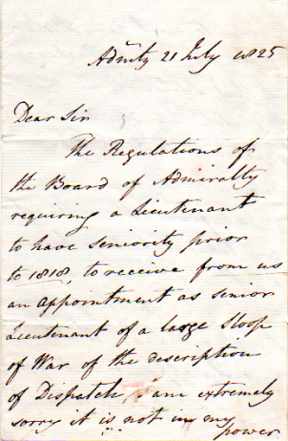 Admty 21 July 1825
Dear Sir
The Regulations of
the Board of Admiralty
requiring a Lieutenant
to have seniority prior
to 1818, to receive from us
an appointment as senior
Lieutenant of a large Sloop
of War of the description
of Dispatch, I am extremely
sorry it is not in my
power